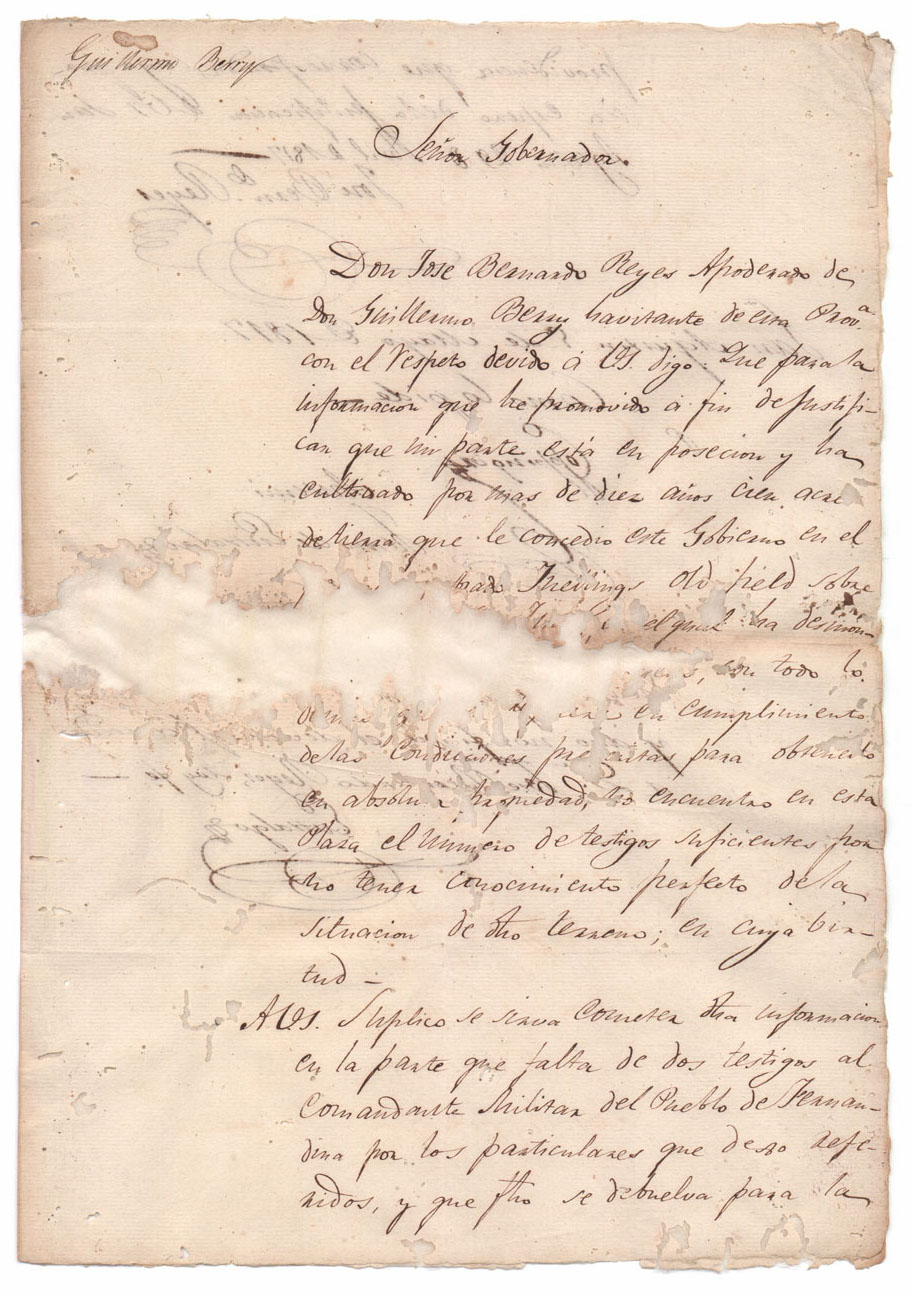 Guillermo Berry
Señor Gobernador.
Don Jose Bernardo Reyes Apoderado de
Don Guillermo Berry havitante de esta Prov.a
con el respeto devido á VS. digo: Que para la
informacion que he promovido á fin de justifi-
car que mi parte está en posecion y ha
cultivado por mas de diez años cien acre
de tierra que le concedio este Gobierno en el
old field sobre
el qual ha desmon-
con todo lo
en cumplimiento
de las Condiciones para obtenerlo
en absoluta propiedad, no encuentro en esta
Plaza el número de testigos suficientes por
no tener conocimiento perfecto de la
situacion de dho terreno; en cuya bir-
tud –
A VS. Suplico se sirva cometer dha informacion
en la parte que falta de dos testigos al
Comandante Militar del Pueblo de Fernan-
dina por los particulares que dexo refe-
ridos, y que fho se debuelva para la